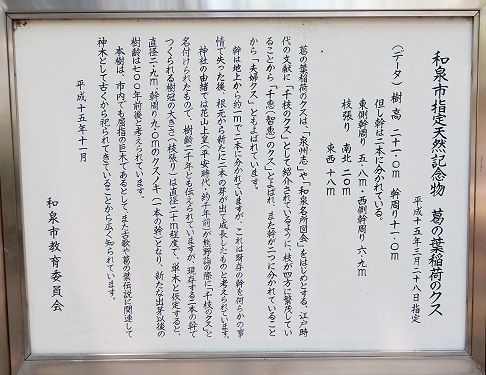 和泉市指定天然記念物 葛の葉稲荷のクス
平成十五年三月二十八日指定
(データ) 樹高 二十一・〇m 幹周り十一・〇m
但し幹は二本に分かれている。
東側幹周り 五・八m・西側幹周り 六・九m
枝張り 南北 二〇m
東西 十八m
葛の葉稲荷のクスは、「泉州志」や「和泉名所図会」をはじめとする、江戸時
代の文献に「千枝のクス」として紹介されているように、枝が四方に繁茂してい
ることから「千恵(智恵)のクス」とよばれ、また幹が二つに分かれていること
から「夫婦クス」ともよばれています。
幹は地上から約一mで二本に分かれていますが、これは既存の幹を何らかの事
情で失った後、根元から新たに二本の芽が出て成長したものと考えられています。
神社の由緒では花山上皇(平安時代・約千年前)が熊野詣の際に「千枝のクス」と
名付けられたもので、樹齢二千年とも伝えられていますが、現存する二本の幹で
つくられる樹冠の大きさ(枝張り)は直径二十m程度で、単木と仮定すると、
直径二・九m、幹周り九・〇mのクスノキ(一本の幹)となり、新たな出芽以後の
樹齢は七〇〇年前後と考えられています。
本樹は、市内でも屈指の巨木であるとして、また古歌や葛の葉伝説に関連して
神木として古くから祀られてきていることから広く知られています。
平成十五年十一月
和泉市教育委員会